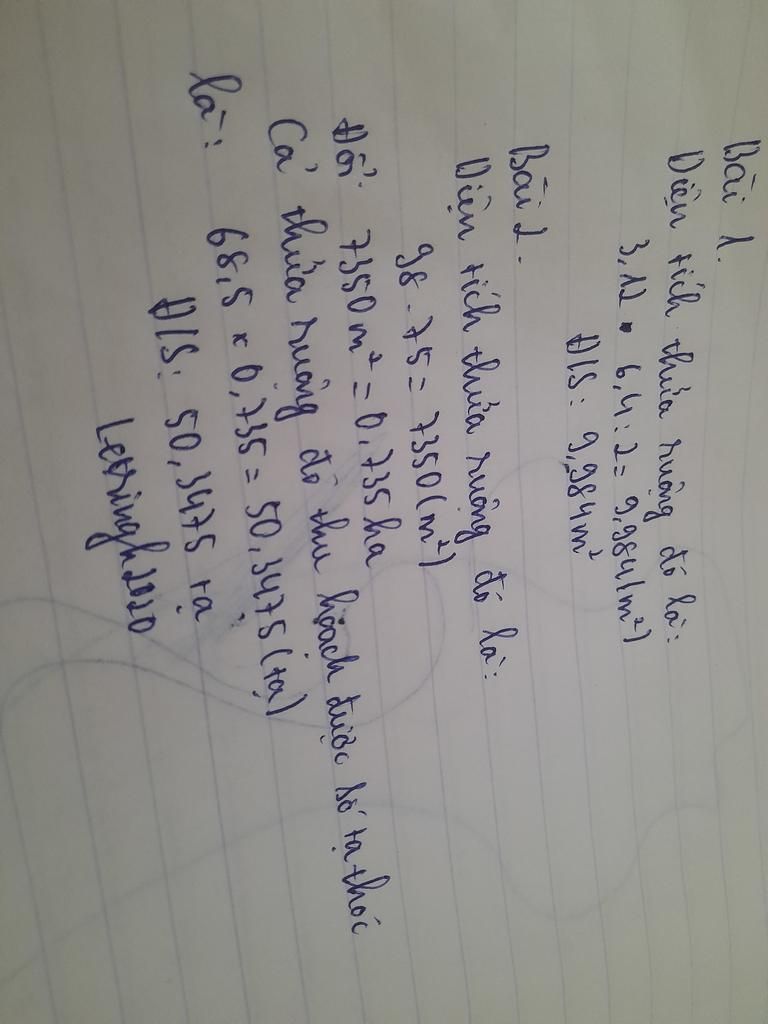 Bài 1.
Diện tích thửa ruộng đó là:
3,12 . 6,4 : 2 = 9,984 (m²)
Đ/S: 9,984 m²
Bài 2.
Diện tích thửa ruộng đó là:
98 . 75 = 7350 (m²)
Đổi: 7350 m² = 0,735 ha
Cả thửa ruộng đó thu hoạch được số tạ thóc
là: 68,5 x 0,735 = 50,3475 (tạ)
Đ/S: 50,3475 tạ